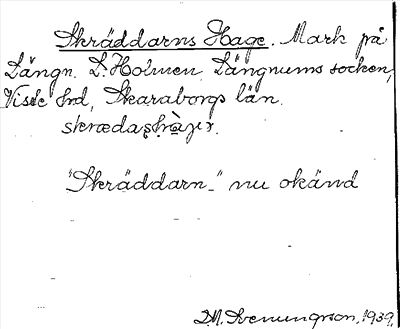 Skräddarns Hage. Mark på
Längn. L. Holmen. Längnums socken,
Viste hd, Skaraborgs län.
"Skräddarn" nu okänd
D.M. Svenungson, 1939.